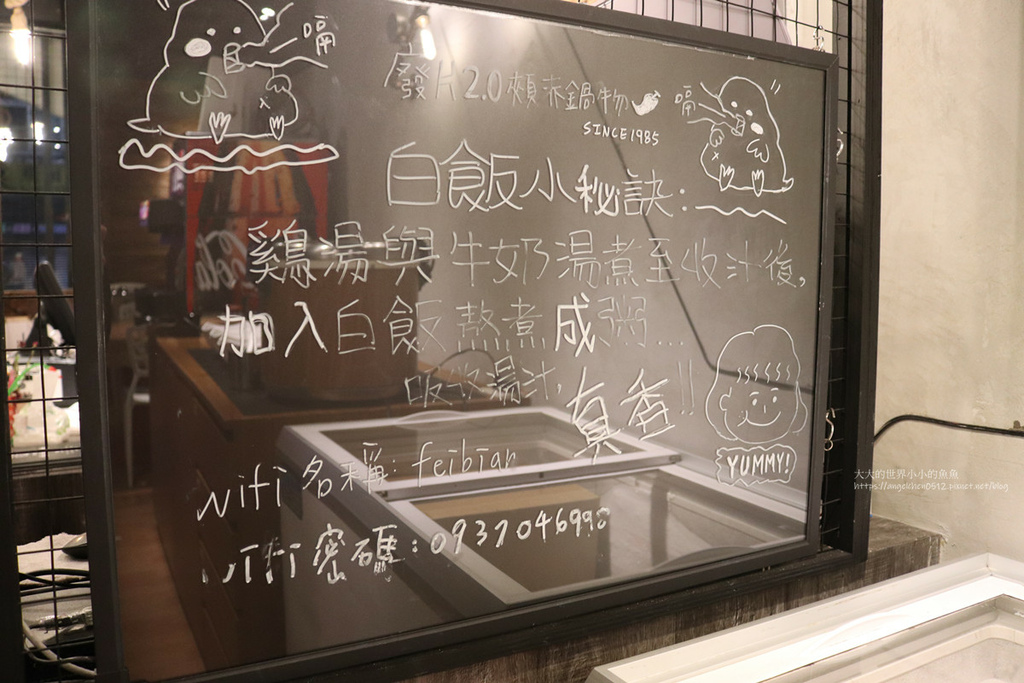 嗝
發片2.0頰赤鍋物
嗝
SINCE1985
白飯小秘訣:
鷄湯與牛奶湯煮至收汁後,
加入白飯熬煮成粥...
吸飽湯汁,真香!!
YUMMY!
wifi名稱:feibian
wifi密碼:0937046998
大大的世界小小的魚魚
https://angelchen0612.pixnet.net/blog